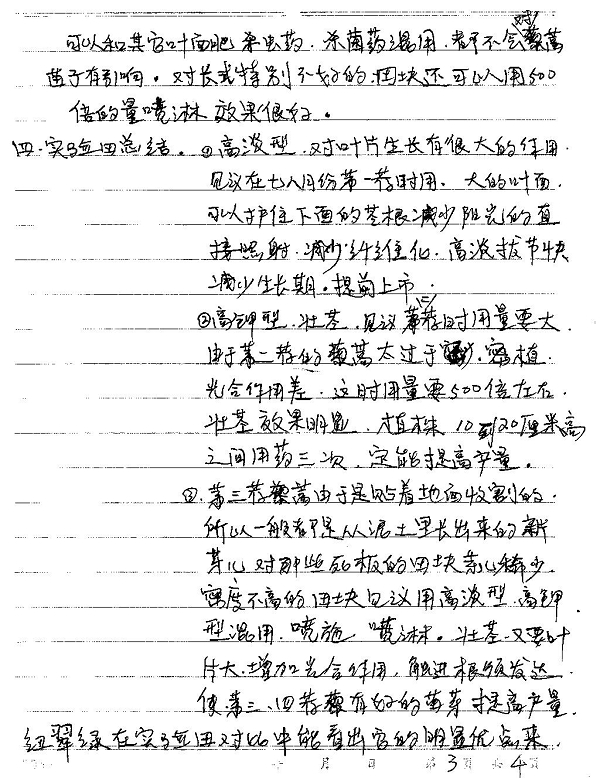 对
可以和其它叶面肥 杀虫药、杀菌药混用,都不会藜蒿
苗子有影响。对长式特别不好的田块还可以用500
倍的量喷淋 效果很好。
四.实验田总结。①高淡型.对叶片生长有很大的作用
见议在七八月份第一荐时用.大的叶面.
可以护住下面的茎根减少阳光的直
接照射.减少纤维化.高淡拔节快
减少生长期。提前上市.
②高钾型.壮茎.见议第二荐时用量要大.
由于第二荐的藜蒿太过于 密植.
光合作用差.这时用量要500倍左右.
壮茎效果明显.植株10到20厘米高
之间用药三次.定能提高产量。
第三荐藜蒿由于是贴着地面收割的.
所以一般都是从泥土里长出来的新
芽心对那些死板的田块芽心稀少.
密度不高的田块见议用高淡型.高钾
型混用.喷施 喷淋。壮茎又要叶
片大.增加光合作用,促进根须发达
使第三、四荐藜有好的苗芽提高产量.
纽翠绿在实验田对比中能看出它的明显优点来.
年 月 日 第3页 共4页